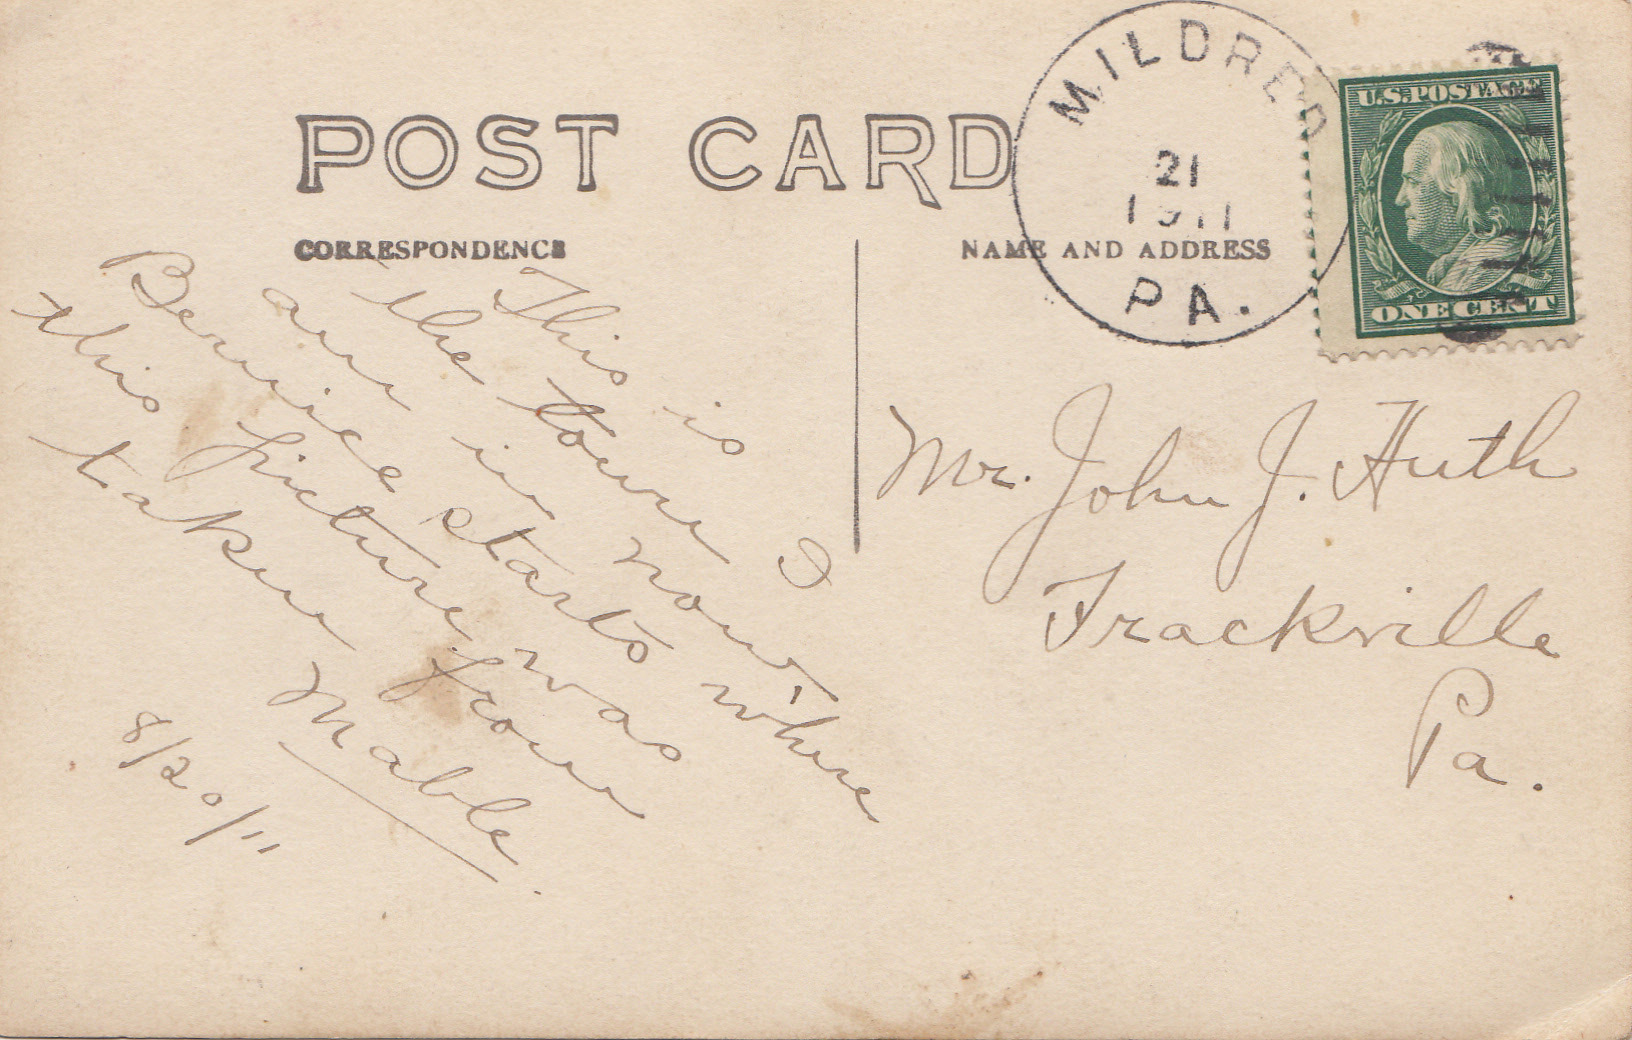 POST CARD
CORRESPONDENCE
NAME AND ADDRESS
MILDRED
21
1911
PA.
U.S. POSTAGE
ONE CENT
This is
the town I
am in now, where
Bernice starts
this picture was
taken from
Mable.
8/20/11
Mr. John J. Huth
Frackville
Pa.